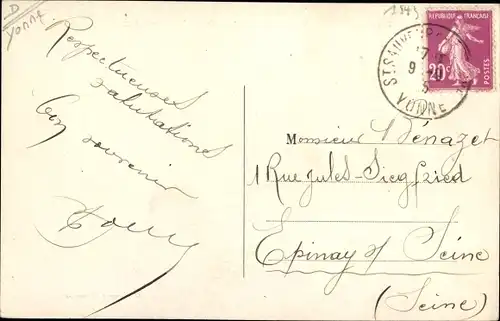 D
Yonne
Respectueuses
salutations
bon souvenir
1 Rue Jules-Siegfried
Monsieur Bénazet
Epinay s/ Seine
(Seine)
RÉPUBLIQUE FRANÇAISE
20c
POSTES
ST. SAUVEUR
YONNE